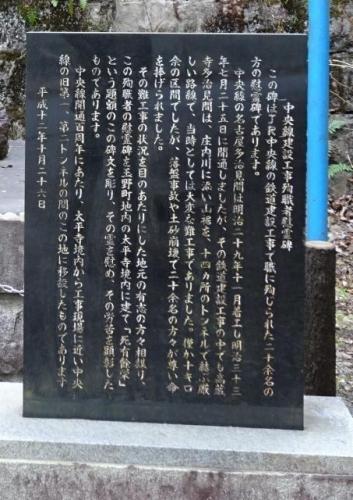 中央線建設工事殉職者慰霊碑
この碑はJR中央線の鉄道建設工事で職に殉じられた二十余名の
方の慰霊碑であります。
中央線の名古屋多治見間は明治二十九年十一月着工し明治三十三
年七月二十五日に開通しましたが、その鉄道建設工事の中でも高蔵
寺多治見間は、庄内川に添い山裾を、十四カ所のトンネルで結ぶ厳
しい路線で、当時としては大変な難工事でありました。僅か十キロ
余の区間でしたが、落盤事故や土砂崩壊で二十余名の方々が尊い命
を捧げられました。
その難工事の状況を目のあたりにした地元の有志の方々相諮り、
この殉職者の慰霊碑を玉野町地内の太平寺境内に建て「死有餘榮」
という題額のこの碑文を彫り、その霊を慰め、その労苦を顕彰した
ものであります。
中央線開通百周年にあたり、太平寺境内から工事現場に近い中央
線の旧第一、第二トンネルの間のこの地に移設したものであります
平成十二年十月二十六日